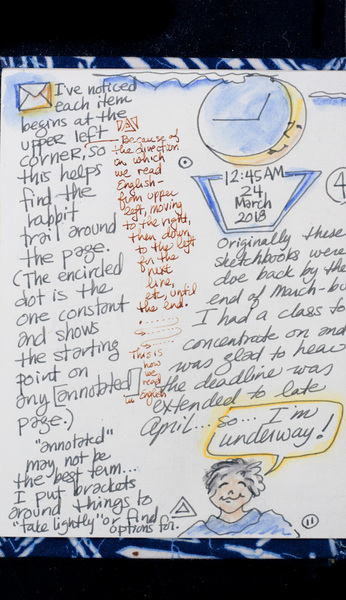 I've noticed
each item
begins at the
upper left
corner, so
this helps
find the
habbit
trail around
the page.
(The encirled
dot is the
one constant
and shows
the starting
point on
any [annotated]
page.)
"annotated"
may not be
the best term...
I put brackets
around things to
"take lightly" or find
options for.
Because of
the direction
in which
we read
English-
from upper
left, moving
to the right,
then down,
to the left
for the
next
line,
etc, until
the end.
This is
how
we
read
in English
12:45 AM
24
March
2018
4
Originally these
sketchbooks were
due back by the
end of March-bu
I had a class to
concentrate on and
was glad to hear
the deadline was
extended to late
April... so...
I'm
underway!
11